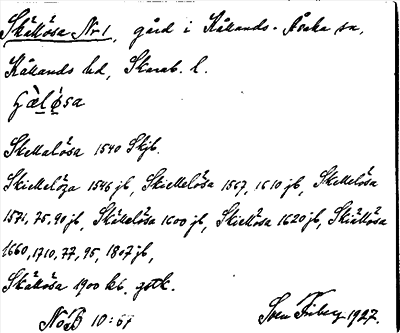 Skälösa Nr 1, gård i Kållands-Åsaka sn,
Kållands hd, Skarab. l.
Skettalösa 1540 Skjb.
Skiettelöza 1546 jb, Skiettelösa 1567, 1610 jb, Skettelösa
1571, 75, 90 jb, Skättelösa 1600 jb, Skiettösa 1620 jb, Skiättösa
1660, 1710, 77, 95, 1807 jb,
Skättösa 1900 kb. gstk.
NoB 10:67 Sven Friberg 1927.